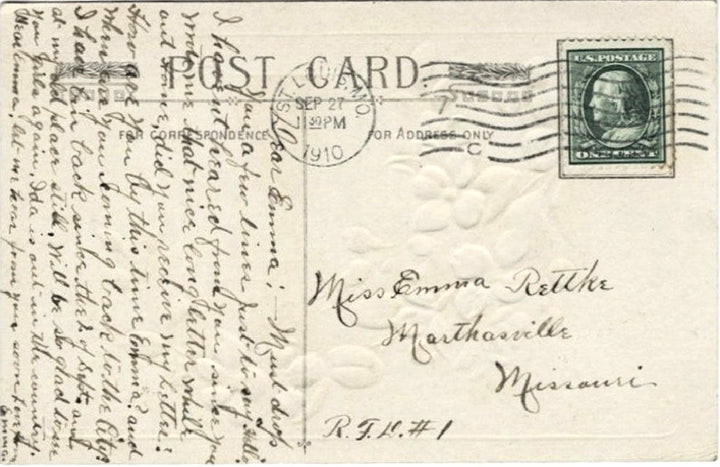 POST CARD
FOR CORRESPONDENCE
FOR ADDRESS ONLY
ST. LOUIS, MO
SEP 27
1910
U.S. POSTAGE
ONE CENT
Dear Emma; - Must drop
you a few lines just to say Hello
I havent heared from you since you
wrote me that nice long letter while
out home, did you receive my letter?
How are you by this time Emma? and
When are you coming back to the City?
I have bin back since the 2 of Sept. and
at my old place still, Will be so glad to see
you girls again, Ida is out in the country.
Dear Emma, let me hear from you soon
Emma
Miss Emma Rettke
Marthasville
Missouri
R.F.D. #1